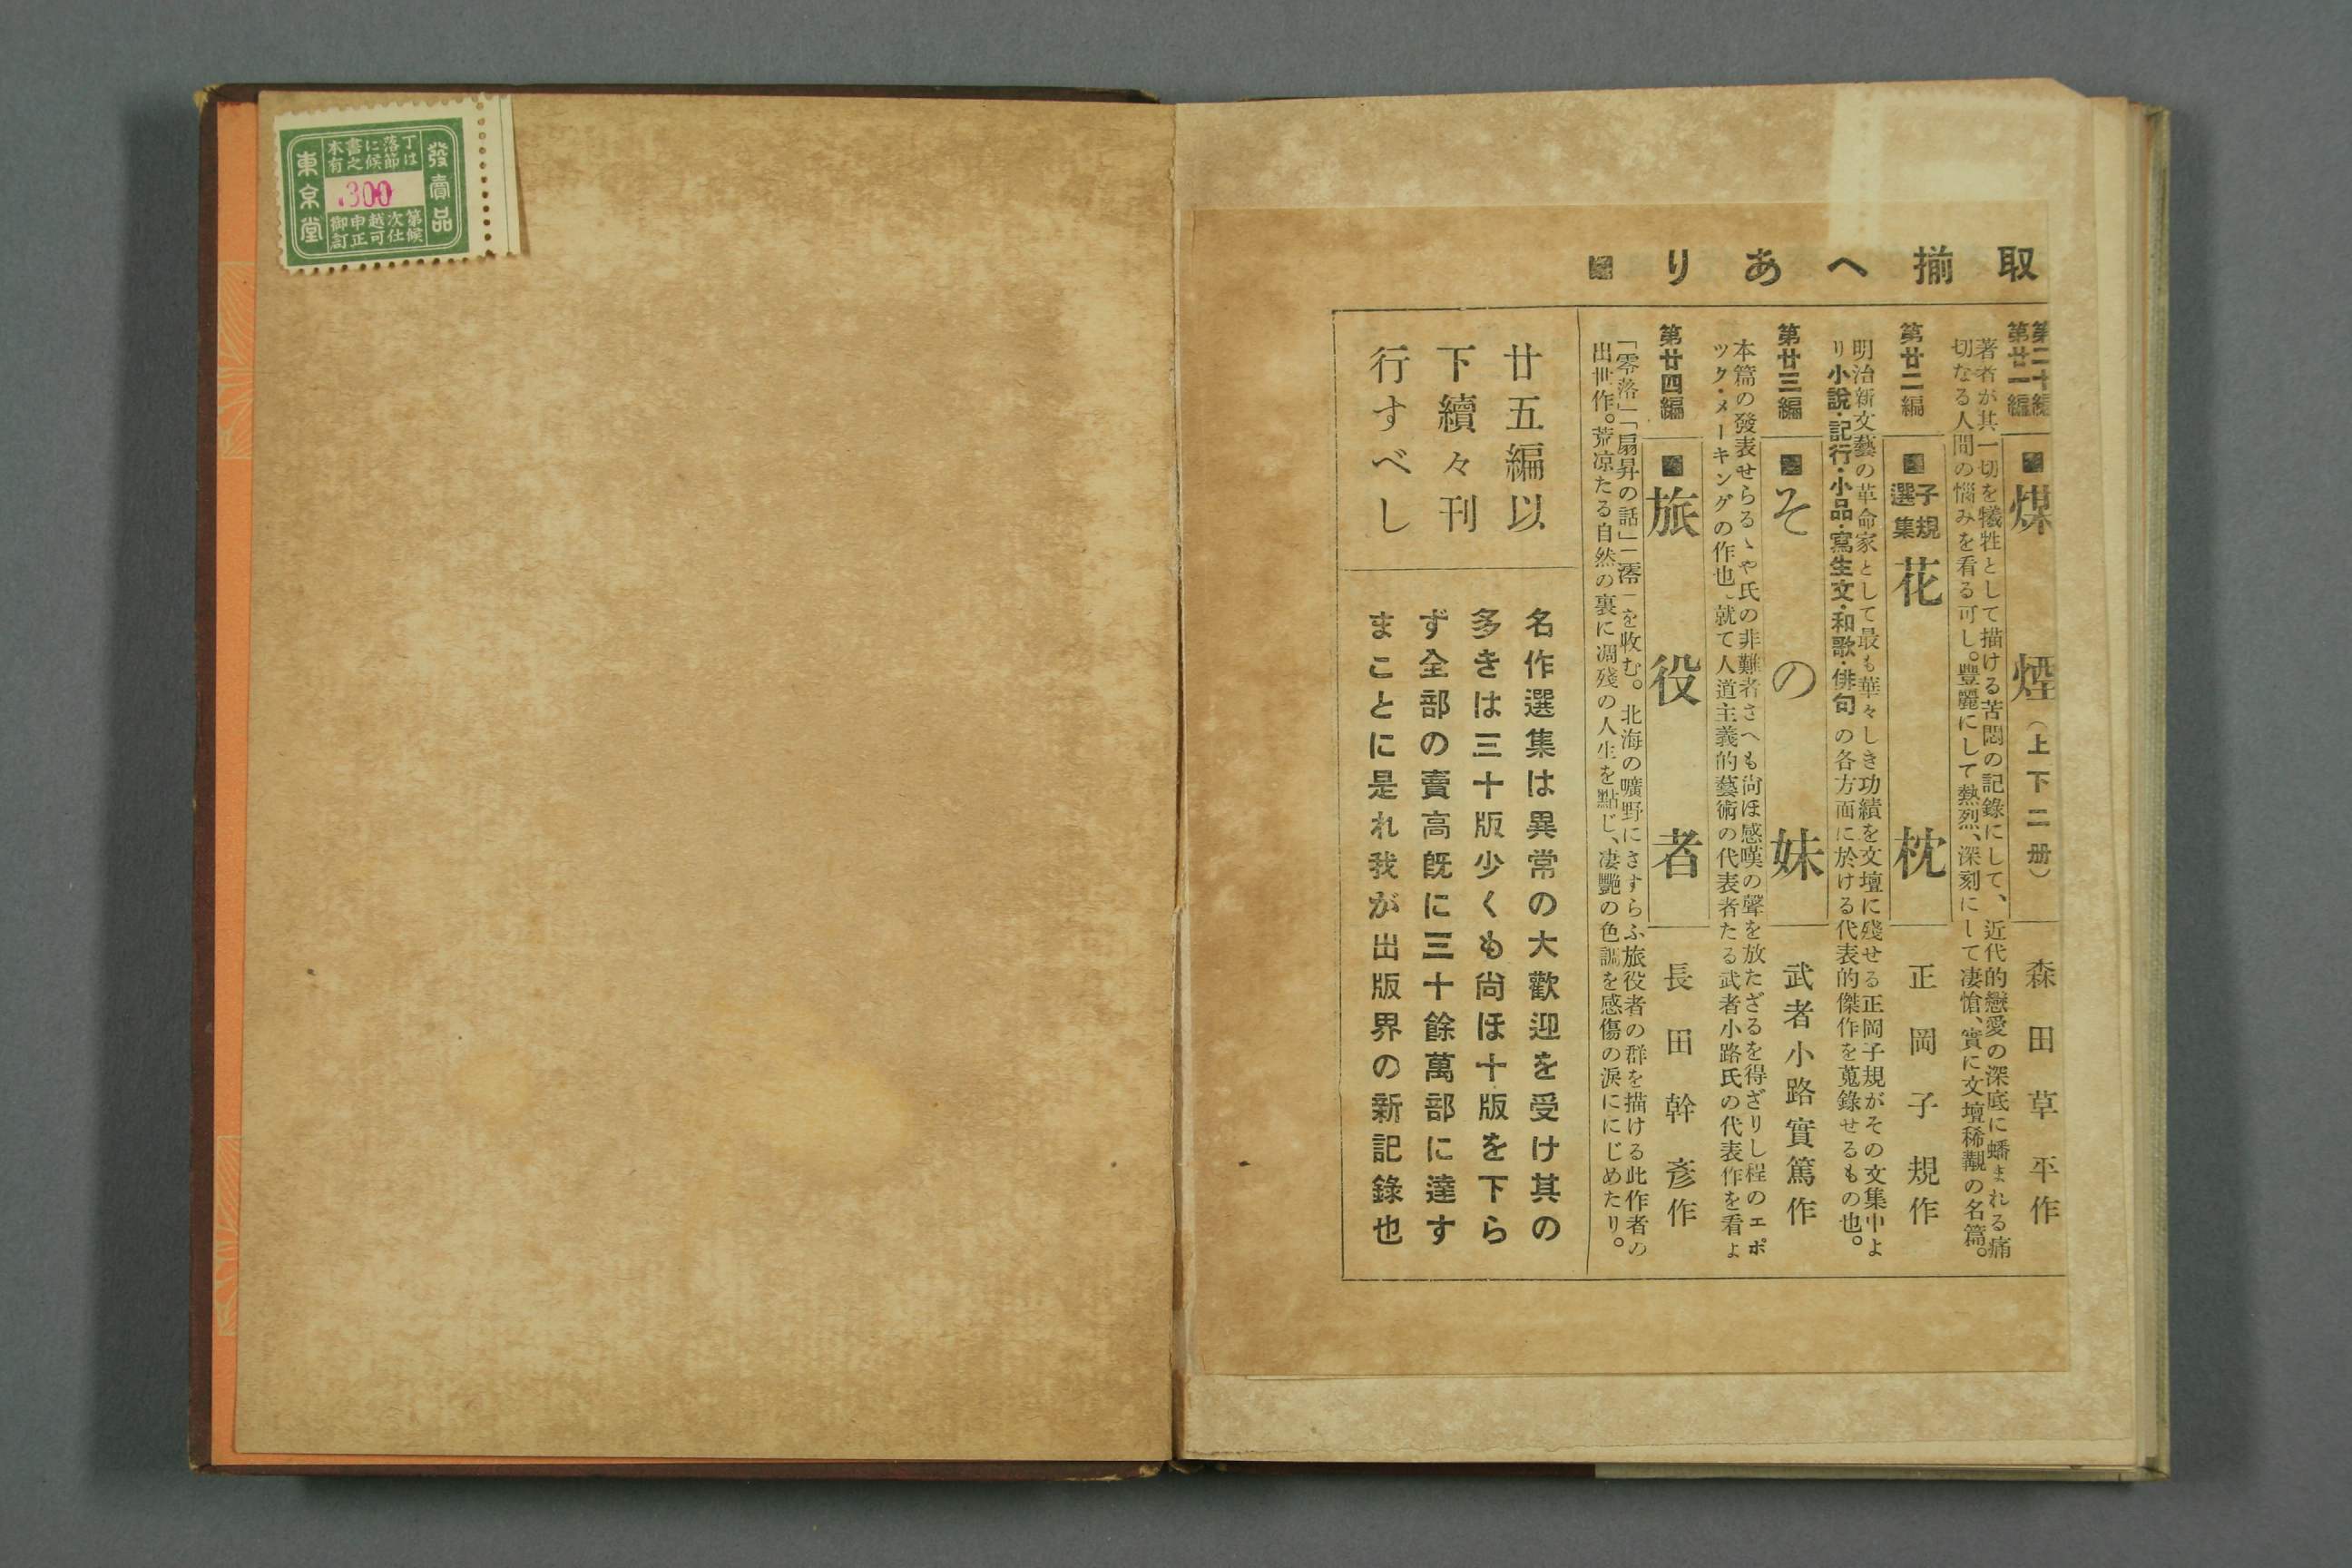 發賣品
丁落に書本
は節候之有
.300
第次越申御
候仕可正訂
東京堂
取揃へあり
第二十編
第廿一編
煤煙(上下二册)
森田草平作
著者が其一切を犧牲として描ける苦悶の記錄にして、近代的戀愛の深底に蟠まれる痛
切なる人間の惱みを看る可し。豐麗にして熱烈、深刻にして凄愴、實に文壇稀覯の名篇。
第廿二編
子規選集
花枕
正岡子規作
明治新文藝の革命家として最も華々しき功績を文壇に殘せる正岡子規がその文集中よ
り小說・記行・小品・寫生文・和歌・俳句の各方面に於ける代表的傑作を蒐錄せるもの也。
第廿三編
その妹
武者小路實篤作
本篇の發表せらるゝや氏の非難者さへも尙ほ感嘆の聲を放たざるを得ざりし程のエポ
ック・メーキングの作也、就て人道主義的藝術の代表者たる武者小路氏の代表作を看よ
第廿四編
旅役者
長田幹彥作
「零落」「扇昇の話」「澪」を收む。北海の曠野にさすらふ旅役者の群を描ける此作者の
出世作。荒凉たる自然の裏に凋殘の人生を點じ、凄艷の色調を感傷の淚ににじめたり。
廿五編以
下續々刊
行すべし
名作選集は異常の大歡迎を受け其の
多きは三十版少くも尙ほ十版を下ら
ず全部の賣高旣に三十餘萬部に達す
まことに是れ我が出版界の新記錄也